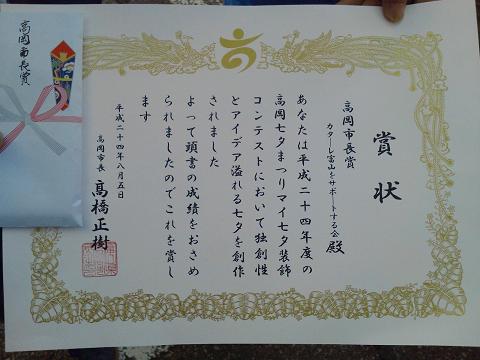 賞状
高岡市長賞
カターレ富山をサポートする会 殿
あなたは平成二十四年度の
高岡七夕まつりマイ七夕装飾
コンテストにおいて独創性
とアイデア溢れる七夕を創作
されました
よって頭書の成績をおさめ
られましたのでこれを賞し
ます
平成二十四年八月五日
高岡市長 高橋正樹
高岡市長賞